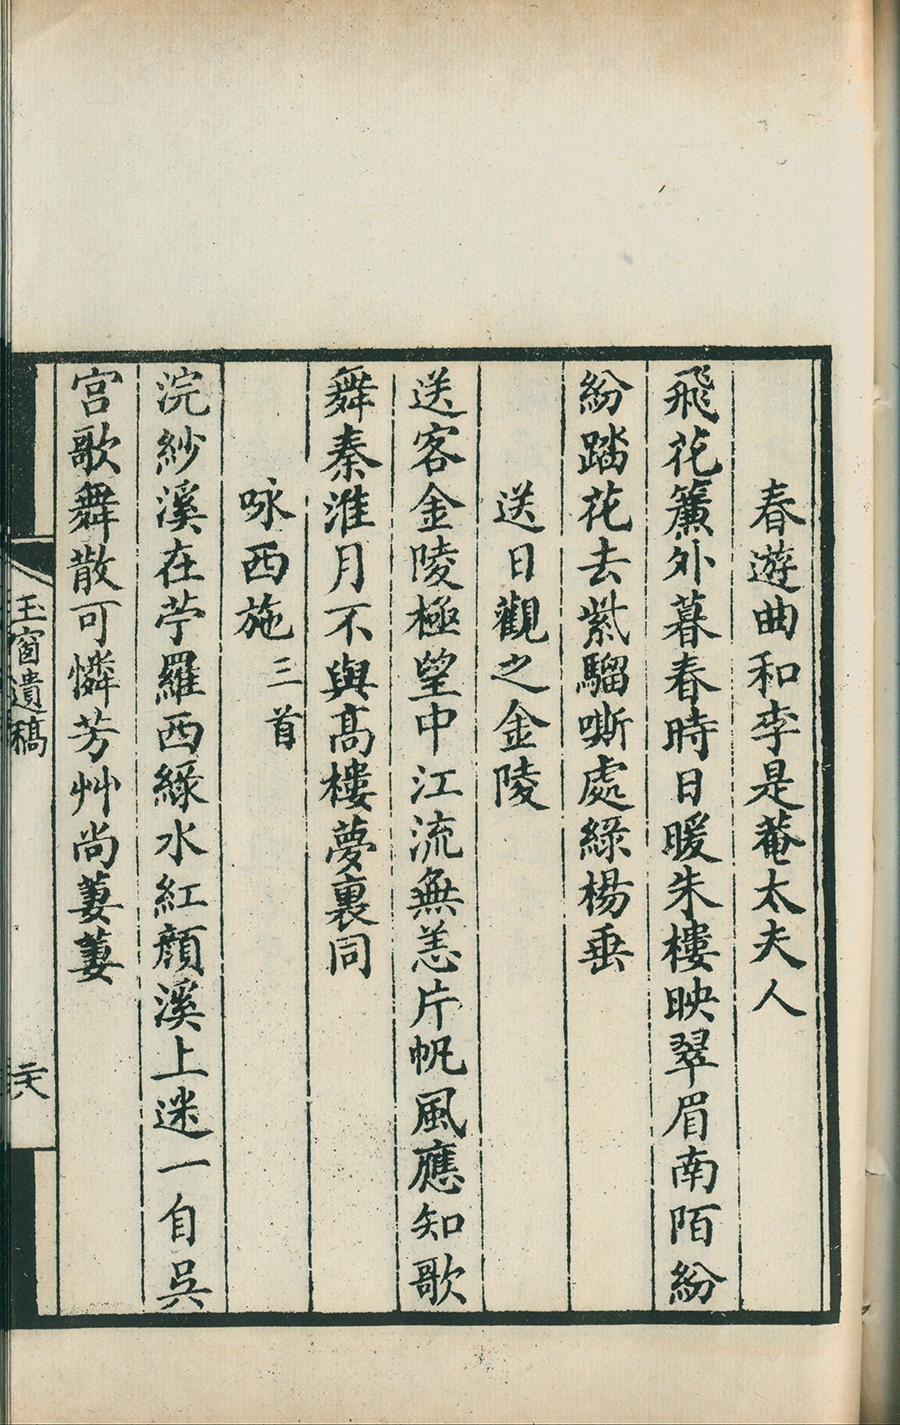 春遊曲和李是菴太夫人
飛花簾外暮春時日暖朱樓映翠眉南陌紛
紛踏花去紫騮嘶處綠楊垂
送日觀之金陵
送客金陵極望中江流無恙片帆風應知歌
舞秦淮月不與高樓夢裏同
咏西施三首
浣紗溪在苧羅西綠水紅顏溪上迷一自吳
宮歌舞散可憐芳艸尚萋萋
玉窗遺稿
二十八